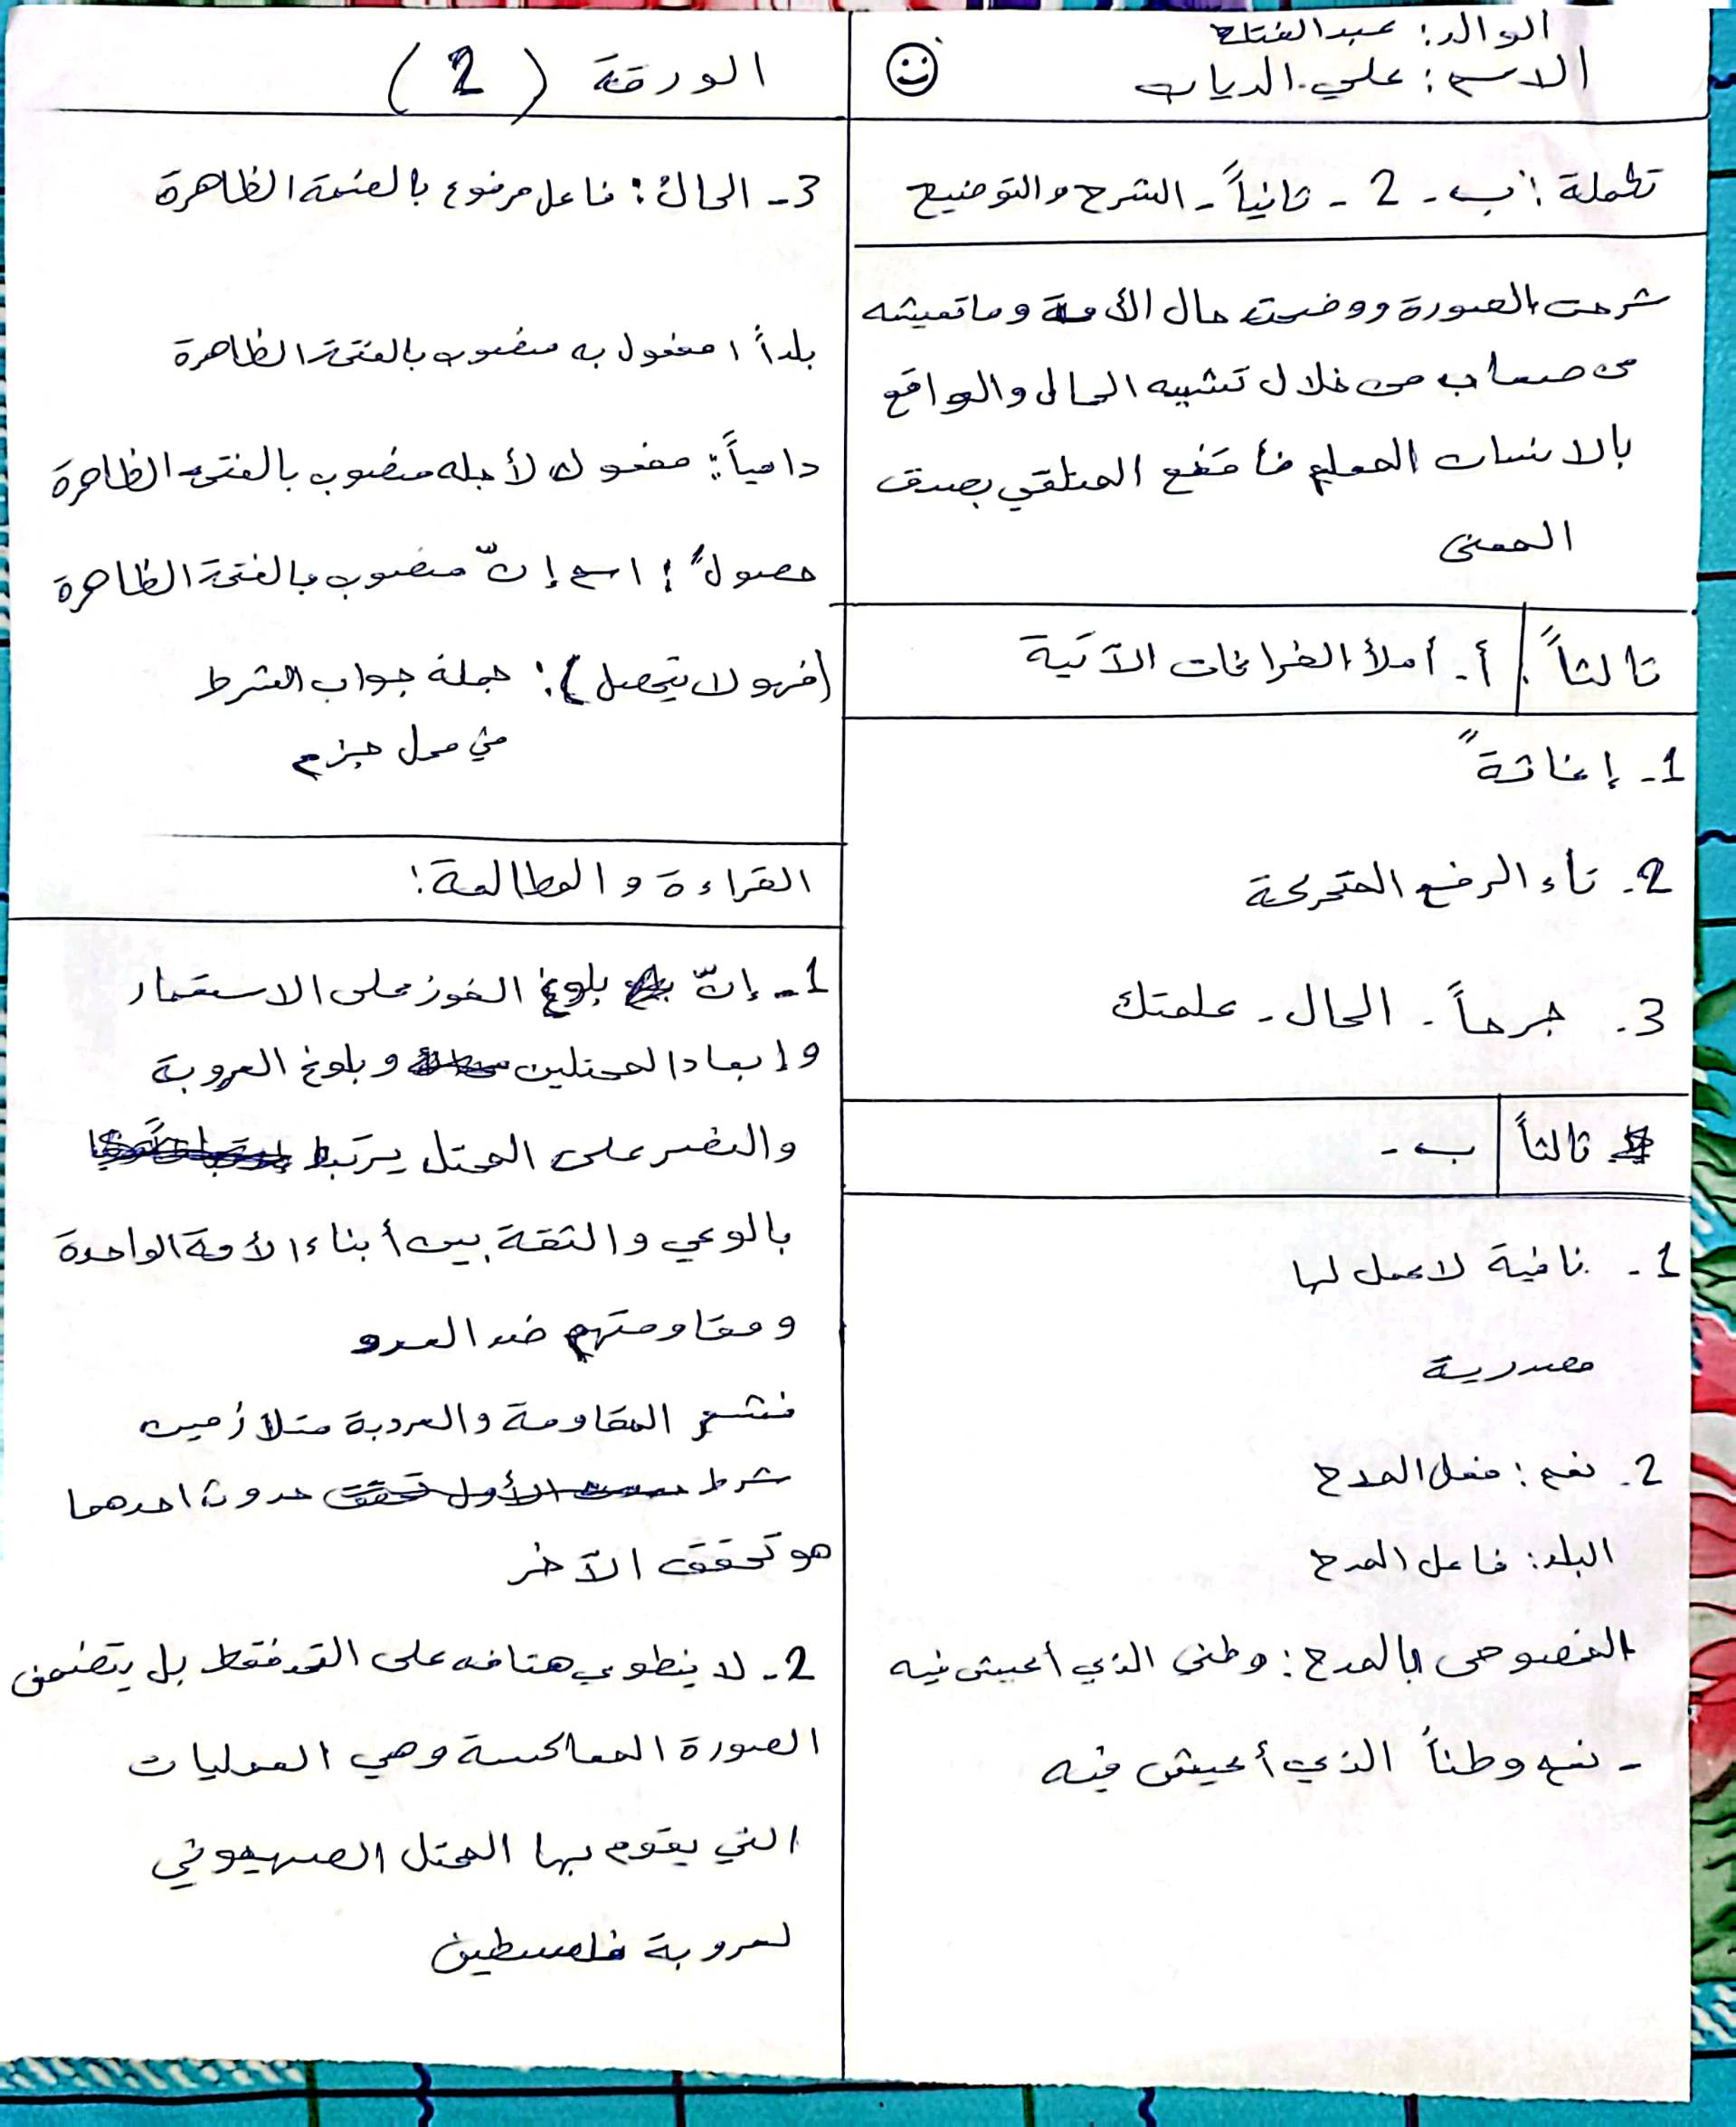 الوالد: عبدالفتاح
الاسم: علي.الدياب
تكملة: ب - 2 - ثانياً - الشرح والتوضيح
شرحت الصورة ووضحت حال الأمة وماتعيشه
من صعاب من خلال تشبيه الحال والواقع
بالانسان المعلم فأقنع المتلقي بصدق
المعنى
ثالثاً: أ. أملأ الفراغات الآتية
1- إغاثةً
2. تاء الرفع المتحركة
3. جرحاً - الحال - علمتك
ثالثاً ب -
1 - نافية لاعمل لها
مصدرية
2. نعم: فعل المدح
البلد: فاعل المدح
المخصوص بالمدح: وطني الذي أعيش فيه
- نعم وطناً الذي أعيش فيه
الورقة (2)
3- الحالُ: فاعل مرفوع بالضمة الظاهرة
بلداً: مفعول به منصوب بالفتحة الظاهرة
دامياً: مفعول لأجله منصوب بالفتحة الظاهرة
حصولَ: اسم إنّ منصوب بالفتحة الظاهرة
(فهو لا يتحصل): جملة جواب الشرط
في محل جزم
القراءة والمطالعة:
1- إنّ بلوغ الفوز على الاستعمار
وإبعاد المحتلين وبلوغ العروبة
والنصر على المحتل يرتبط
بالوعي والثقة بين أبناء الأمة الواحدة
ومقاومتهم ضد العدو
المقاومة والعروبة متلازمين
شرط حدوث احدهما
هو تحقق الآخر
2- لا ينطوي هتافه على فقط بل يتضمن
الصورة المعاكسة وهي العمليات
التي يقوم بها المحتل الصهيوني
لعروبة فلسطين